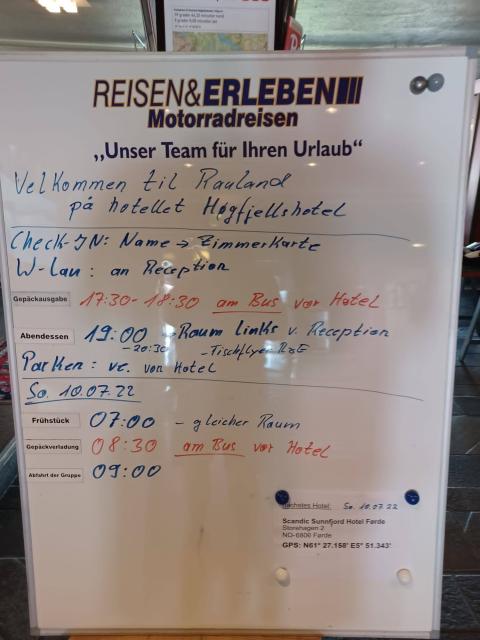 REISEN&ERLEBEN
Motorradreisen
„Unser Team für Ihren Urlaub“
Velkommen til Rauland
på hotellet Høgfjellshotel
Check-IN: Name → Zimmerkarte
W-Lan: an Reception
Gepäckausgabe 17:30-18:30 am Bus vor Hotel
Abendessen 19:00 → Raum links v. Reception
-20:30 - Tischflyer R&E
Parken: vor Hotel
So. 10.07.22
Frühstück 07:00 - gleicher Raum
Gepäckverladung 08:30 am Bus vor Hotel
Abfahrt der Gruppe 09:00
Nächstes Hotel: So. 10.07.22
Scandic Sunnfjord Hotel Førde
Storehagen 2
NO-6806 Førde
GPS: N61° 27.158' E5° 51.343'